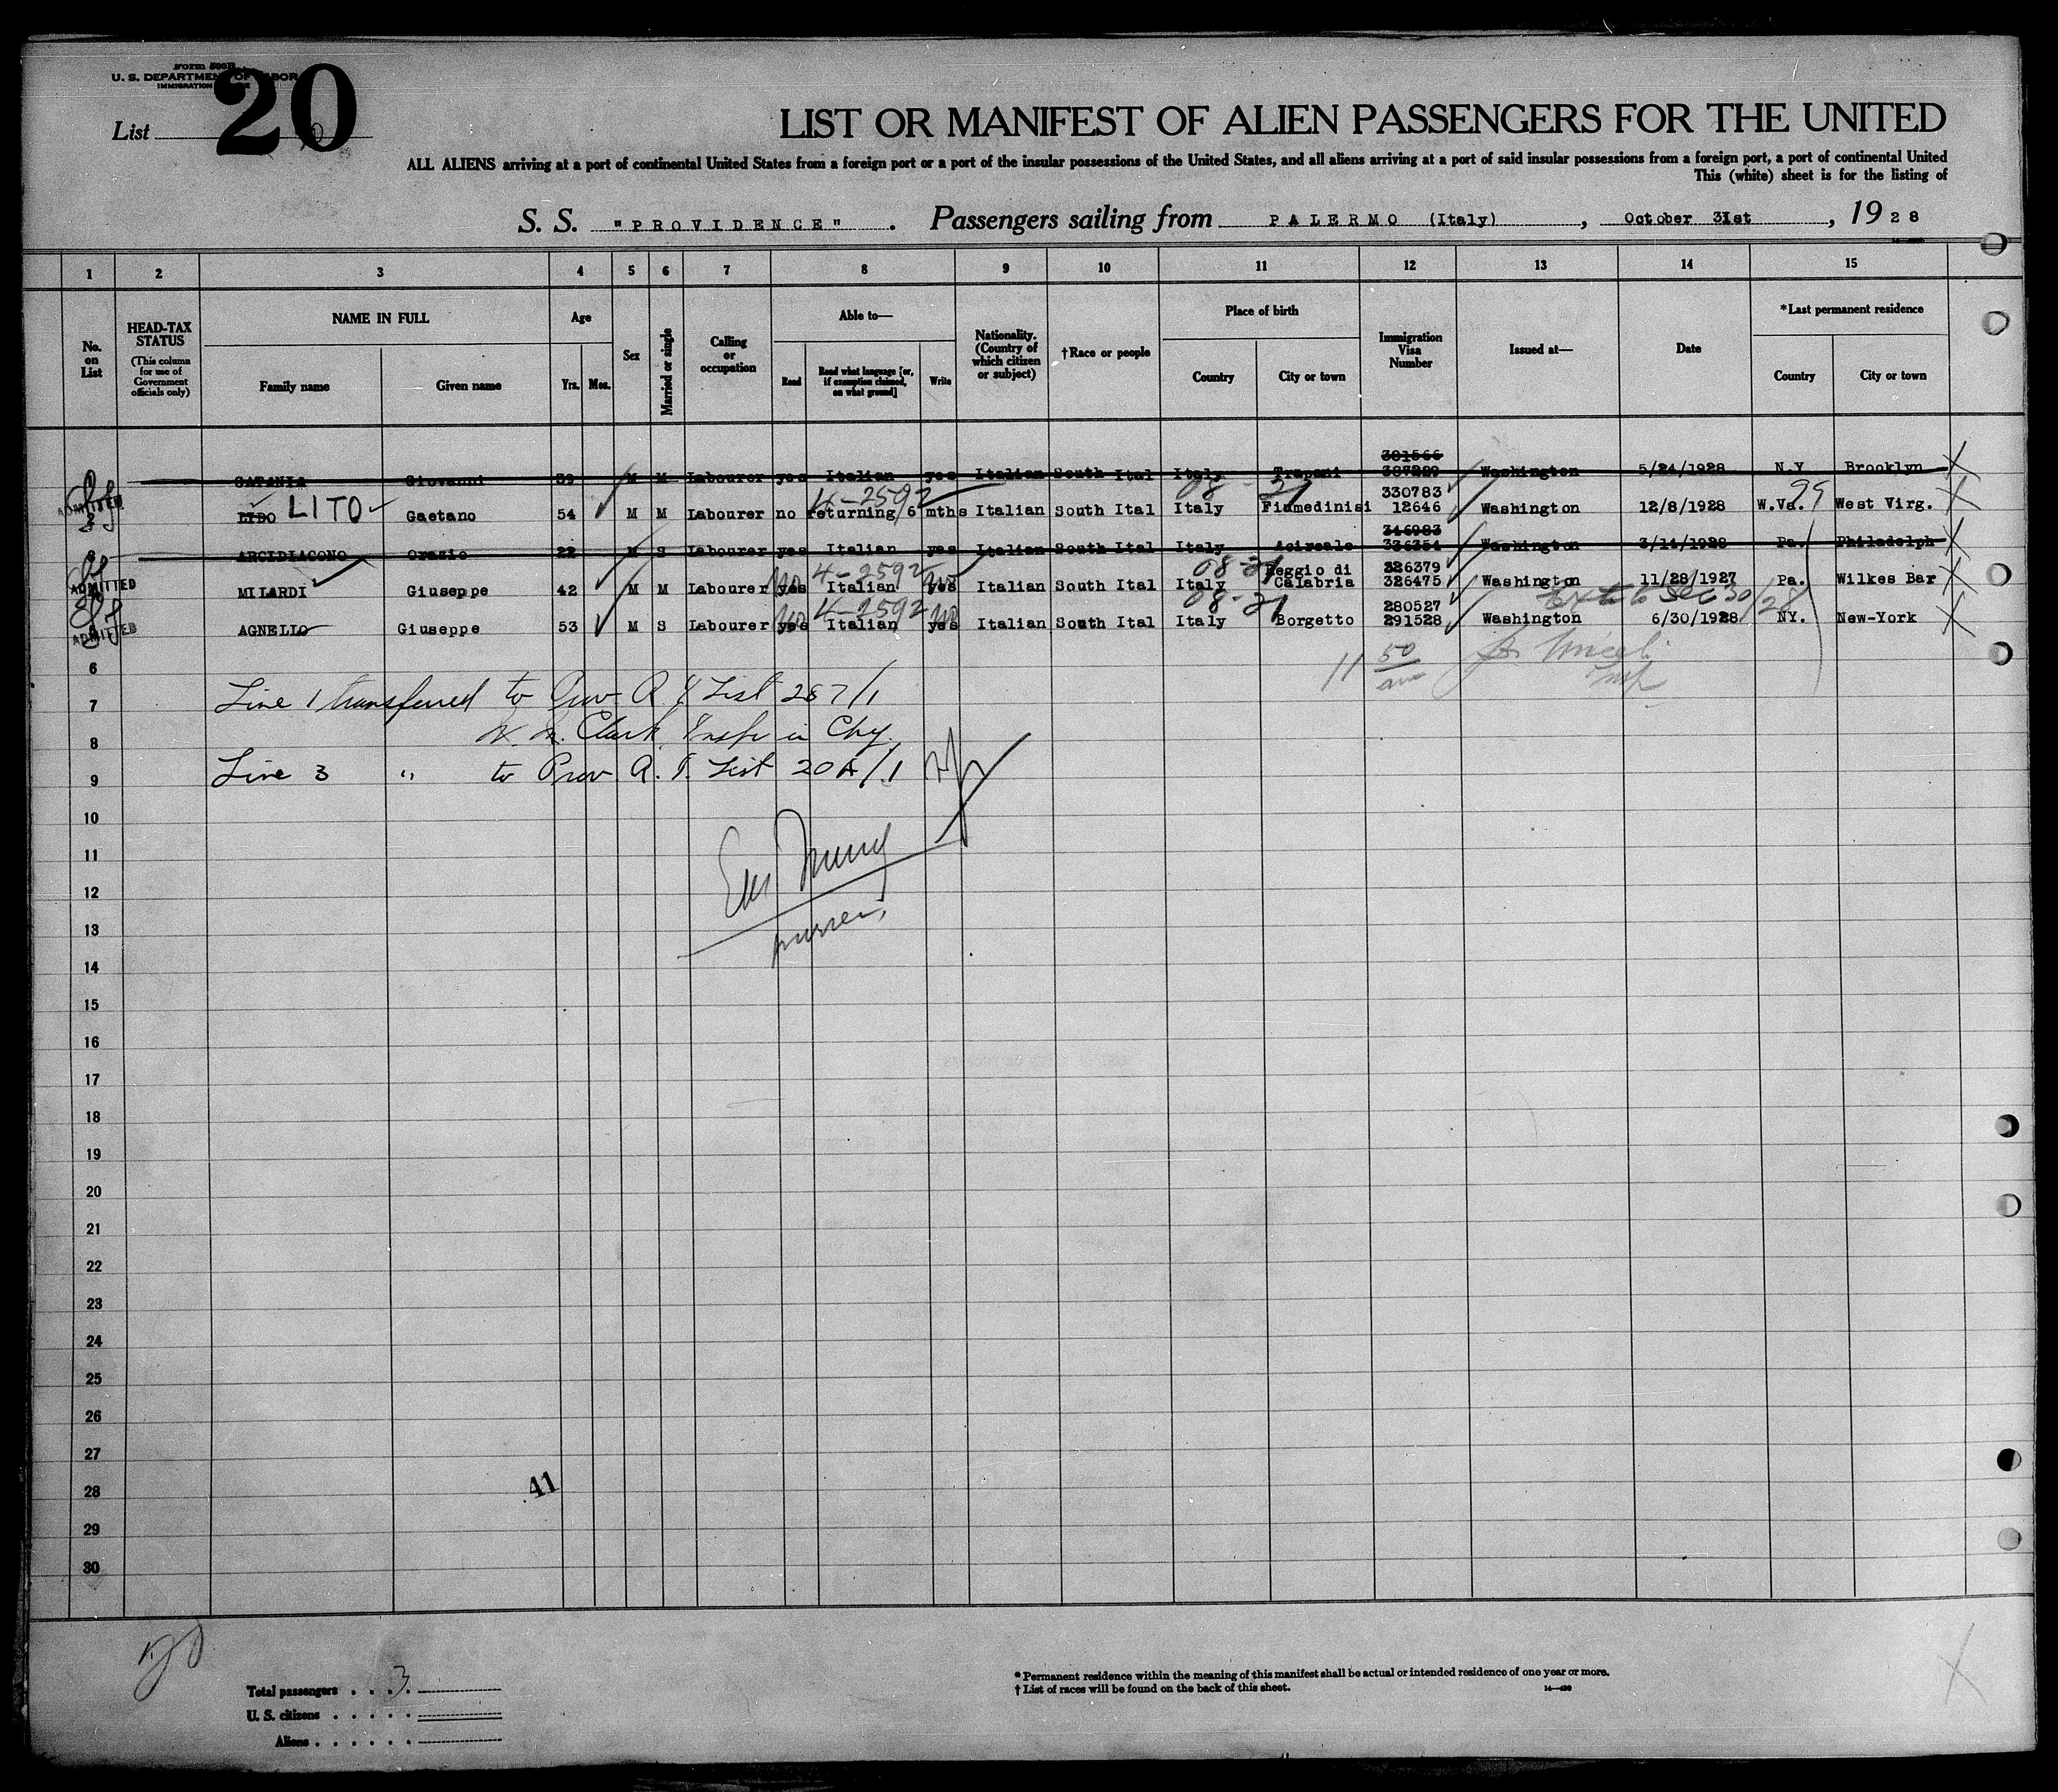 Form 500B
U. S. DEPARTMENT OF LABOR
IMMIGRATION
List 20
LIST OR MANIFEST OF ALIEN PASSENGERS FOR THE UNITED
ALL ALIENS arriving at a port of continental United States from a foreign port or a port of the insular possessions of the United States, and all aliens arriving at a port of said insular possessions from a foreign port, a port of continental United
This (white) sheet is for the listing of
S. S. "PROVIDENCE" . Passengers sailing from PALERMO (Italy) , October 31st , 1928
1 2 3 4 5 6 7 8 9 10 11 12 13 14 15
No. on List
HEAD-TAX STATUS
(This column for use of Government officials only)
NAME IN FULL
Family name Given name
Age
Yrs. Mos.
Sex
Married or single
Calling or occupation
Able to—
Read Read what language [or, if exemption claimed, on what ground] Write
Nationality. (Country of which citizen or subject)
†Race or people
Place of birth
Country City or town
Immigration Visa Number
Issued at—
Date
*Last permanent residence
Country City or town
381566
CATANIA Giovanni 39 M M Labourer yes Italian yes Italian South Ital Italy Trapani 387229 Washington 5/24/1928 N.Y Brooklyn
4-2592 08-21 330783 99
ADMITTED 2 LIDO LITO Gaetano 54 M M Labourer no returning/6 mths Italian South Ital Italy Fiumedinisi 12646 Washington 12/8/1928 W.Va. West Virg.
346983
3 ARCIDIACONO Orazio 22 M S Labourer yes Italian yes Italian South Ital Italy Acireale 336354 Washington 3/14/1928 Pa. Philadelph
4-2592 08-21 Reggio di 326379
ADMITTED MILARDI Giuseppe 42 M M Labourer yes No Italian yes No Italian South Ital Italy Calabria 326475 Washington 11/28/1927 Pa. Wilkes Bar
4-2592 08-21 280527 Ext to Dec 30/28
ADMITTED 5 AGNELLO Giuseppe 53 M S Labourer yes No Italian yes No Italian South Ital Italy Borgetto 291528 Washington 6/30/1928 NY. New-York
6 11 50 am
7 Line 1 transferred to Prov. List 287/1
8 Clark Insp in Chg.
9 Line 3 " to Prov List 20A/1
10
11
12
13
14
15
16
17
18
19
20
21
22
23
24
25
26
27
28 41
29
30
Total passengers . . . 3
U. S. citizens . . . . .
Aliens . . . . . .
* Permanent residence within the meaning of this manifest shall be actual or intended residence of one year or more.
† List of races will be found on the back of this sheet.